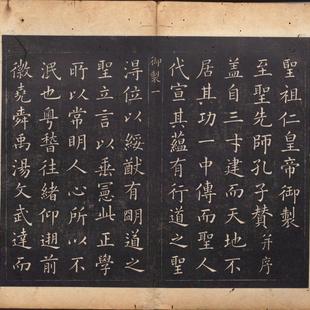 聖祖仁皇帝御製
至聖先師孔子贊并序
蓋自三才建而天地不
居其功一中傳而聖人
代宣其蘊有行道之聖
御製一
得位以綏猷有明道之
聖立言以垂憲此正學
所以常明人心所以不
泯也粵稽往緒仰遡前
徽堯舜禹湯文武達而